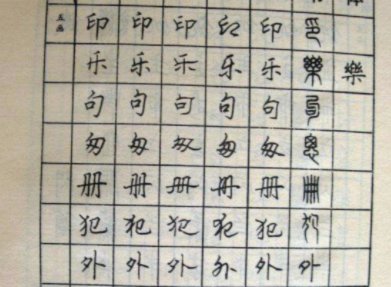 五画 印 印 印 印 印 印
乐 乐 乐 乐 乐 樂 樂
句 句 句 句 句 句
匆 匆 匆 匆 匆 悤
册 册 册 册 册 册
犯 犯 犯 犯 犯 犯
外 外 外 外 外 外